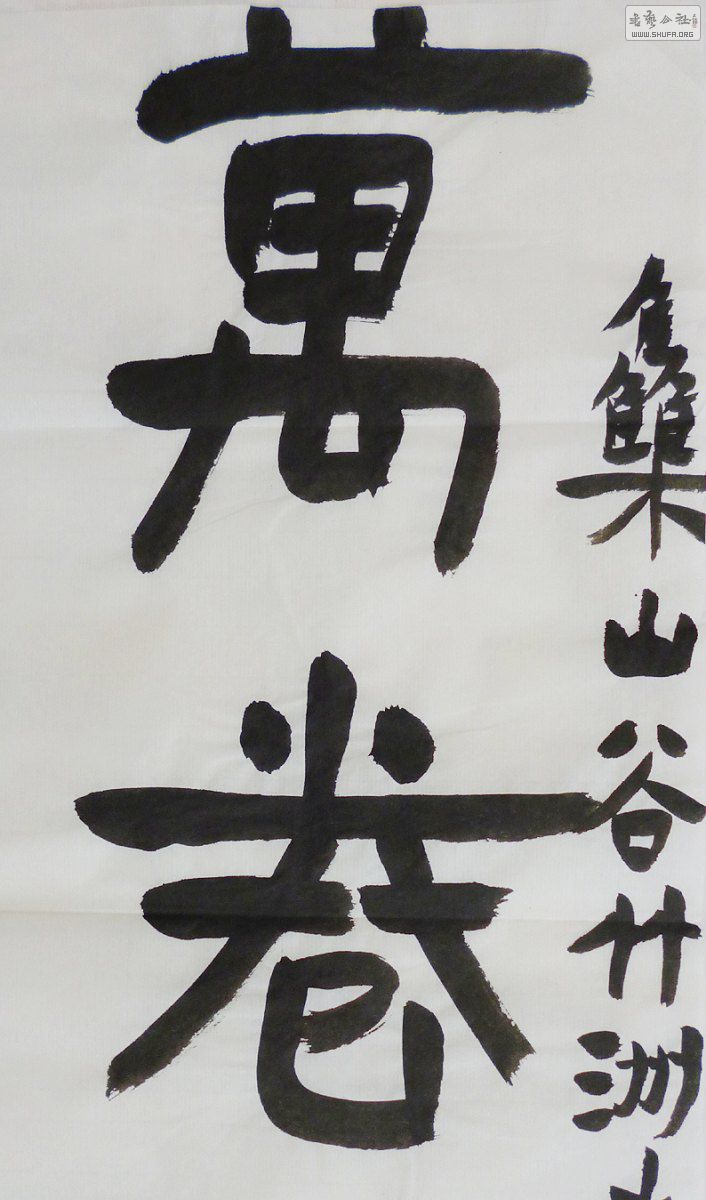 集山谷竹洲
萬卷
書藝公社
WWW.SHUFA.ORG